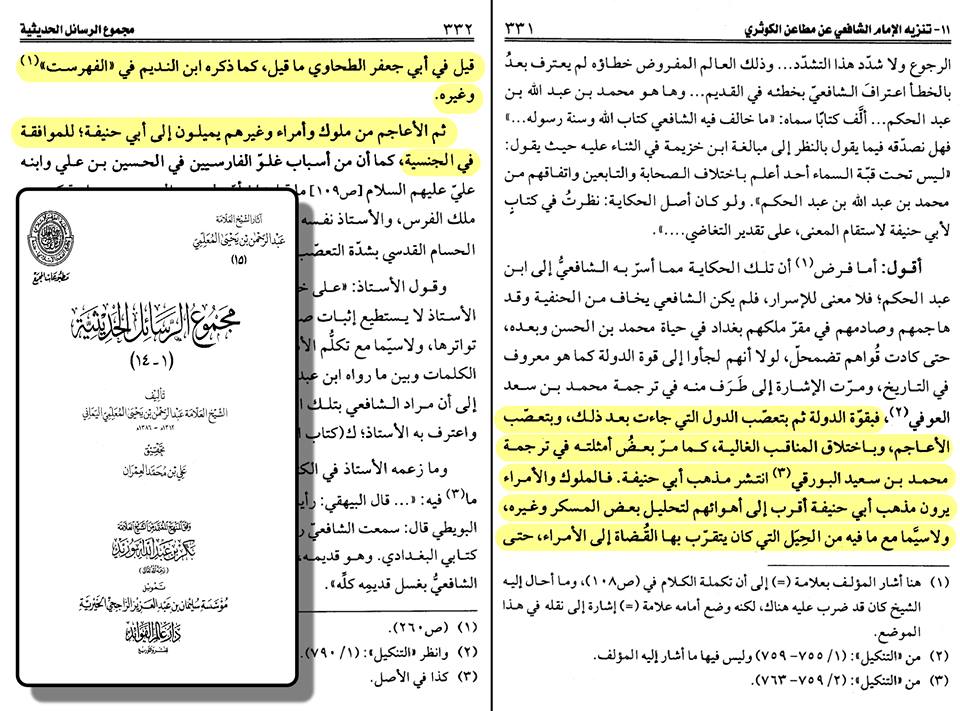 ١١- تنزيه الإمام الشافعي عن مطاعن الكوثري
٣٣١
الرجوع ولا شدّد هذا التشدّد... وذلك العالم المفروض خطاؤه لم يعترف بعدُ
بالخطأ اعترافَ الشافعيّ بخطئه في القديم... وها هو محمد بن عبد الله بن
عبد الحكم... ألّف كتابًا سماه: «ما خالف فيه الشافعي كتاب الله وسنة رسوله...»
فهل نصدّقه فيما يقول بالنظر إلى مبالغة ابن خزيمة في الثناء عليه حيث يقول:
«ليس تحت قبّة السماء أحد أعلم باختلاف الصحابة والتابعين واتفاقهم من
محمد بن عبد الله بن عبد الحكم». ولو كان أصل الحكاية: نظرتُ في كتابٍ
لأبي حنيفة لاستقام المعنى، على تقدير التغاضي....».
أقول: أما فرض(١) أن تلك الحكاية مما أسرّ به الشافعيُّ إلى ابن
عبد الحكم؛ فلا معنى للإسرار، فلم يكن الشافعي يخاف من الحنفية وقد
هاجمهم وصادمهم في مقرّ ملكهم بغداد في حياة محمد بن الحسن وبعده،
حتى كادت قُواهم تضمحلّ، لولا أنهم لجأوا إلى قوة الدولة كما هو معروف
في التاريخ، ومرّت الإشارة إلى طَرَف منه في ترجمة محمد بن سعد
العوفي(٢)، فبقوّة الدولة ثم بتعصّب الدول التي جاءت بعد ذلك، وبتعصّب
الأعاجم، وباختلاق المناقب الغالية، كما مرّ بعضُ أمثلته في ترجمة
محمد بن سعيد البورقي(٣) انتشر مذهب أبي حنيفة. فالملوك والأمراء
يرون مذهب أبي حنيفة أقرب إلى أهوائهم لتحليل بعض المسكر وغيره،
ولاسيَّما مع ما فيه من الحِيَل التي كان يتقرب بها القُضاة إلى الأمراء، حتى
(١) هنا أشار المؤلف بعلامة (=) إلى أن تكملة الكلام في (ص١٠٨)، وما أحال إليه
الشيخ كان قد ضرب عليه هناك، لكنه وضع أمامه علامة (=) إشارة إلى نقله في هذا
الموضع.
(٢) من «التنكيل»: (١/ ٧٥٥-٧٥٩) وليس فيها ما أشار إليه المؤلف.
(٣) من «التنكيل»: (٢/ ٧٥٩-٧٦٣).
٣٣٢
مجموع الرسائل الحديثية
قيل في أبي جعفر الطحاوي ما قيل، كما ذكره ابن النديم في «الفهرست»(١)
وغيره.
ثم الأعاجم من ملوك وأمراء وغيرهم يميلون إلى أبي حنيفة؛ للموافقة
في الجنسية، كما أن من أسباب غلوّ الفارسيين في الحسين بن علي وابنه
عليّ عليهم السلام [ص١٠٩]
ملك الفرس، والأستاذ نفسه
الحسام القدسي بشدّة التعصّب
وقول الأستاذ: «على
الأستاذ لا يستطيع إثبات
تواترها، ولاسيّما مع تكلُّم
الكلمات وبين ما رواه ابن عبد
إلى أن مراد الشافعي بتلك
واعترف به الأستاذ؛ ك(كتاب
وما زعمه الأستاذ في
ما(٣) فيه: «... قال البيهقي:
البويطي قال: سمعت الشافعيّ
كتابي البغدادي. وهو قديمه،
الشافعيُّ بغسل قديمِه كلِّه».
(١) (ص٢٦٠).
(٢) وانظر «التنكيل»: (١/ ٧٩٠).
(٣) كذا في الأصل.
آثار الشيخ العلامة
عبد الرحمن بن يحيى المعلمي
(١٥)
مجموع الرسائل الحديثية
(١-١٤)
تأليف
الشيخ العلامة عبد الرحمن بن يحيى المعلمي اليماني
١٣١٢هـ - ١٣٨٦هـ
تحقيق
علي بن محمد العمران
وفق المنهج المعتمد من الشيخ العلامة
بكر بن عبد الله أبو زيد
(رحمه الله تعالى)
تمويل
مؤسسة سليمان بن عبد العزيز الراجحي الخيرية
دار عالم الفوائد
للنشر والتوزيع